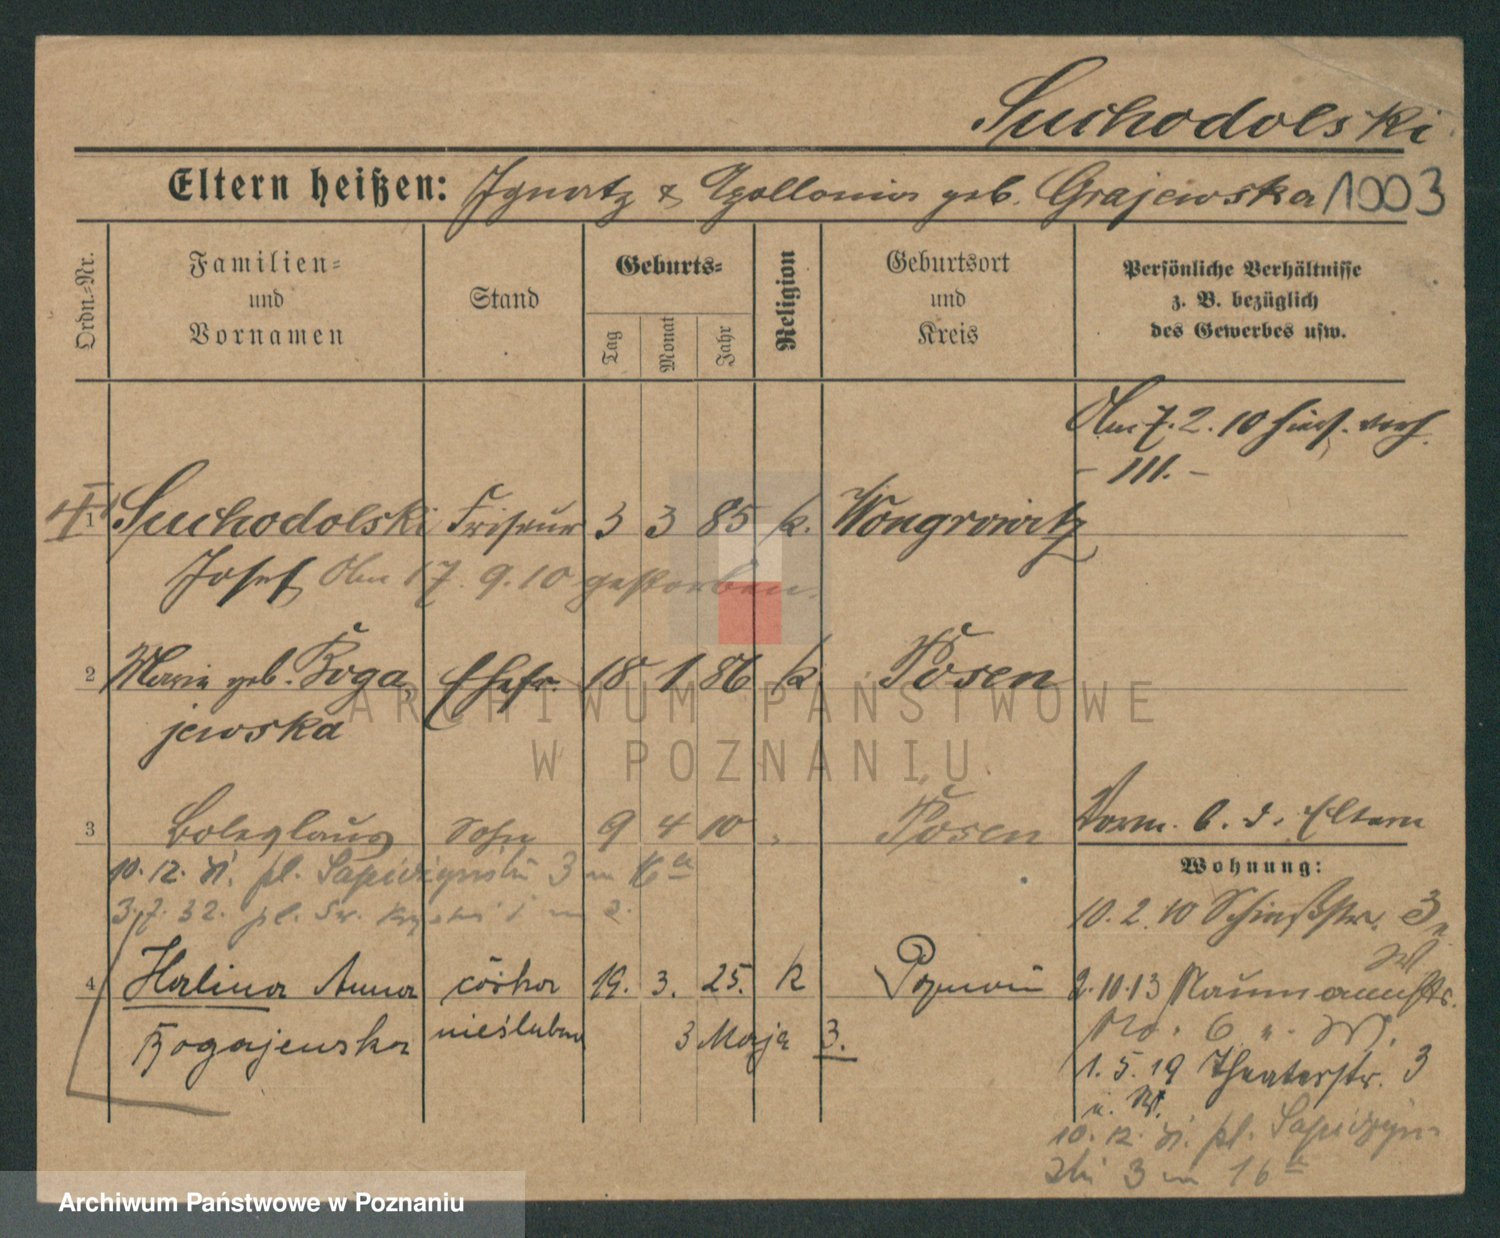 Suchodolski
Eltern heißen: Ignatz & Apollonia geb. Grajewska 1003
Ordn.-Nr.
Familien-
und
Vornamen
Stand
Geburts-
Tag
Monat
Jahr
Religion
Geburtsort
und
Kreis
Persönliche Verhältnisse
z. B. bezüglich
des Gewerbes usw.
Am 7. 2. 10 verh.
- III. -
1 Suchodolski Friseur 3 3 85 k. Wongrowitz
Josef Am 17. 9. 10 gestorben.
2 Maria geb. Boga Ehefr. 18 1 86 k. Posen
jewska
3 Boleslaus Sohn 9 4 10 " Posen
Vorm. b. d. Eltern
Wohnung:
10. 12. pl. Sapieżyński 3 m 16a
3. 7. 32. pl. Św. Krzyski 1 m 2.
10. 2. 10 Schießstr. 3
W
4 Halina Anna córka 19. 3. 25. k Poznań
2. 10. 13 Naumannstr.
Bogajewska nieślubna 3 Maja 3.
No. 6 W.
1. 5. 19 Theaterstr. 3
u. W.
10. 12. pl. Sapieżyń-
ski 3 m 16a
ARCHIWUM PAŃSTWOWE
W POZNANIU
Archiwum Państwowe w Poznaniu